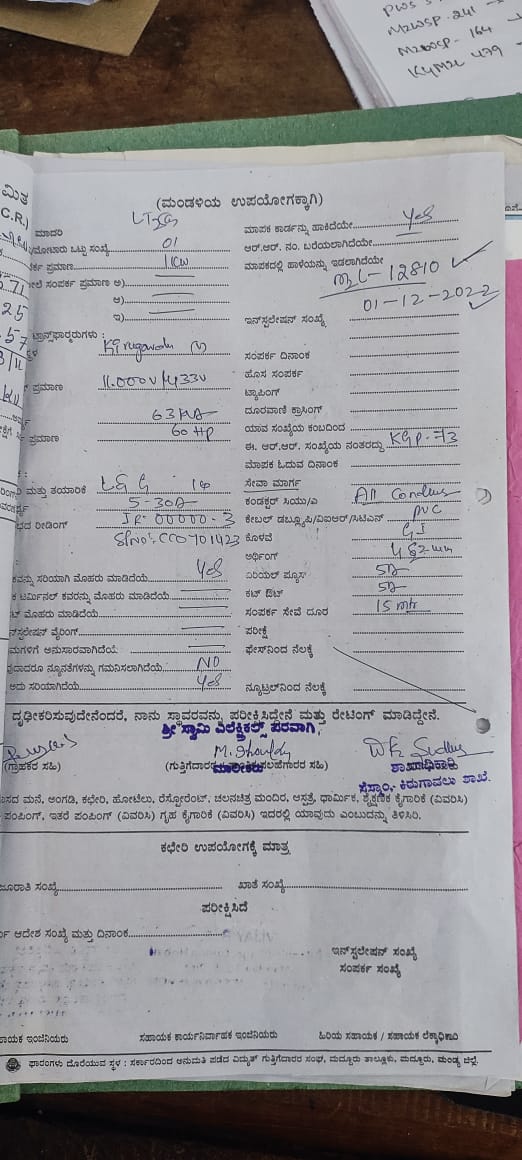 PWS
M2WSP-241
M2WSP-164
KYM2L 479
(ಮಂಡಳಿಯ ಉಪಯೋಗಕ್ಕಾಗಿ)
ಮಾದರಿ
ಮಾಪಕ ಕಾರ್ಡನ್ನು ಹಾಕಿದೆಯೇ Yes
ಒಟ್ಟು ಸಂಖ್ಯೆ 01
ಆರ್.ಆರ್. ನಂ. ಬರೆಯಲಾಗಿದೆಯೇ
ಪ್ರಮಾಣ 1KW
ಮಾಪಕದಲ್ಲಿ ಹಾಳೆಯನ್ನು ಇಡಲಾಗಿದೆಯೇ
ಸಂಪರ್ಕ ಪ್ರಮಾಣ ಅ)
M2L-12810
ಆ)
01-12-2022
ಇ)
ಇನ್‌ಸ್ಟಲೇಷನ್ ಸಂಖ್ಯೆ
ಟ್ರಾನ್ಸ್‌ಫಾರ್ಮರುಗಳು :
Kirugavalu (V)
ಸಂಪರ್ಕ ದಿನಾಂಕ
ಹೊಸ ಸಂಪರ್ಕ
ಪ್ರಮಾಣ 11.000V/433V
ಟ್ಯಾಪಿಂಗ್
63 KVA
ದೂರವಾಣಿ ಕ್ರಾಸಿಂಗ್
ಪ್ರಮಾಣ 60 HP
ಯಾವ ಸಂಖ್ಯೆಯ ಕಂಬದಿಂದ
ಈ. ಆರ್.ಆರ್. ಸಂಖ್ಯೆಯ ನಂತರದ್ದು KGP-73
ಮಾಪಕ ಓದುವ ದಿನಾಂಕ
ಮತ್ತು ತಯಾರಿಕೆ L&G 1φ
ಸೇವಾ ಮಾರ್ಗ
5-30A
ಕಂಡಕ್ಟರ್ ಸಿಯು/ಎ All
ರೀಡಿಂಗ್ IR: 00000.3
ಕೇಬಲ್ ಡಬ್ಲ್ಯೂಪಿ/ವಿಐಆರ್/ಸಿಟಿಎಸ್ PVC
SlNo: CC0701423
ಕೊಳವೆ GI
ಅರ್ಥಿಂಗ್
ಸರಿಯಾಗಿ ಮೊಹರು ಮಾಡಿದೆಯೆ Yes
ಏರಿಯಲ್ ಫ್ಯೂಸ್ 5A
ಟರ್ಮಿನಲ್ ಕವರನ್ನು ಮೊಹರು ಮಾಡಿದೆಯೆ
ಕಟ್ ಔಟ್ 5A
ಮೊಹರು ಮಾಡಿದೆಯೆ
ಸಂಪರ್ಕ ಸೇವೆ ದೂರ 15 mtr
ವೈರಿಂಗ್
ಪರೀಕ್ಷೆ
ಅನುಸಾರವಾಗಿದೆಯೆ
ಫೇಸ್‌ನಿಂದ ನೆಲಕ್ಕೆ
ನ್ಯೂನತೆಗಳನ್ನು ಗಮನಿಸಲಾಗಿದೆಯೆ NO
ಅದು ಸರಿಯಾಗಿದೆಯೆ Yes
ನ್ಯೂಟ್ರಲ್‌ನಿಂದ ನೆಲಕ್ಕೆ
ದೃಢೀಕರಿಸುವುದೇನೆಂದರೆ, ನಾನು ಸ್ಥಾವರವನ್ನು ಪರೀಕ್ಷಿಸಿದ್ದೇನೆ ಮತ್ತು ರೇಟಿಂಗ್ ಮಾಡಿದ್ದೇನೆ.
ಶ್ರೀ ಸ್ವಾಮಿ ಎಲೆಕ್ಟ್ರಿಕಲ್ಸ್ ಪರವಾಗಿ,
(ಗ್ರಾಹಕರ ಸಹಿ)
ಮಾಲೀಕರು
ಶಾಖಾಧಿಕಾರಿ
ಸೆಸ್ಕಾಂ,- ಕಿರುಗಾವಲು ಶಾಖೆ.
ಮನೆ, ಅಂಗಡಿ, ಕಛೇರಿ, ಹೋಟೆಲು, ರೆಸ್ಟೋರೆಂಟ್, ಚಲನಚಿತ್ರ ಮಂದಿರ, ಆಸ್ಪತ್ರೆ, ಧಾರ್ಮಿಕ, ಶೈಕ್ಷಣಿಕ ಕೈಗಾರಿಕೆ (ವಿವರಿಸಿ)
ಪಂಪಿಂಗ್, ಇತರೆ ಪಂಪಿಂಗ್ (ವಿವರಿಸಿ) ಗೃಹ ಕೈಗಾರಿಕೆ (ವಿವರಿಸಿ) ಇದರಲ್ಲಿ ಯಾವುದು ಎಂಬುದನ್ನು ತಿಳಿಸಿರಿ.
ಕಛೇರಿ ಉಪಯೋಗಕ್ಕೆ ಮಾತ್ರ
ಸಂಖ್ಯೆ
ಖಾತೆ ಸಂಖ್ಯೆ
ಪರೀಕ್ಷಿಸಿದೆ
ಆದೇಶ ಸಂಖ್ಯೆ ಮತ್ತು ದಿನಾಂಕ
ಇನ್‌ಸ್ಟಲೇಷನ್ ಸಂಖ್ಯೆ
ಸಂಪರ್ಕ ಸಂಖ್ಯೆ
ಇಂಜಿನಿಯರು
ಸಹಾಯಕ ಕಾರ್ಯನಿರ್ವಾಹಕ ಇಂಜಿನಿಯರು
ಹಿರಿಯ ಸಹಾಯಕ / ಸಹಾಯಕ ಲೆಕ್ಕಾಧಿಕಾರಿ
ಫಾರಂಗಳು ದೊರೆಯುವ ಸ್ಥಳ : ಸರ್ಕಾರದಿಂದ ಅನುಮತಿ ಪಡೆದ ವಿದ್ಯುತ್ ಗುತ್ತಿಗೆದಾರರ ಸಂಘ, ಮದ್ದೂರು ತಾಲ್ಲೂಕು, ಮದ್ದೂರು, ಮಂಡ್ಯ ಜಿಲ್ಲೆ.